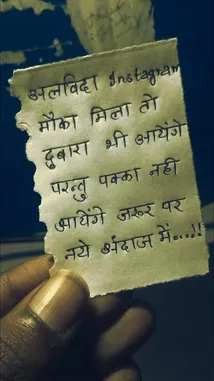 अलविदा Instagram
मौका मिला तो
दुबारा भी आयेंगे
परन्तु पक्का नही
आयेंगे जरूर पर
नये अंदाज में...!!